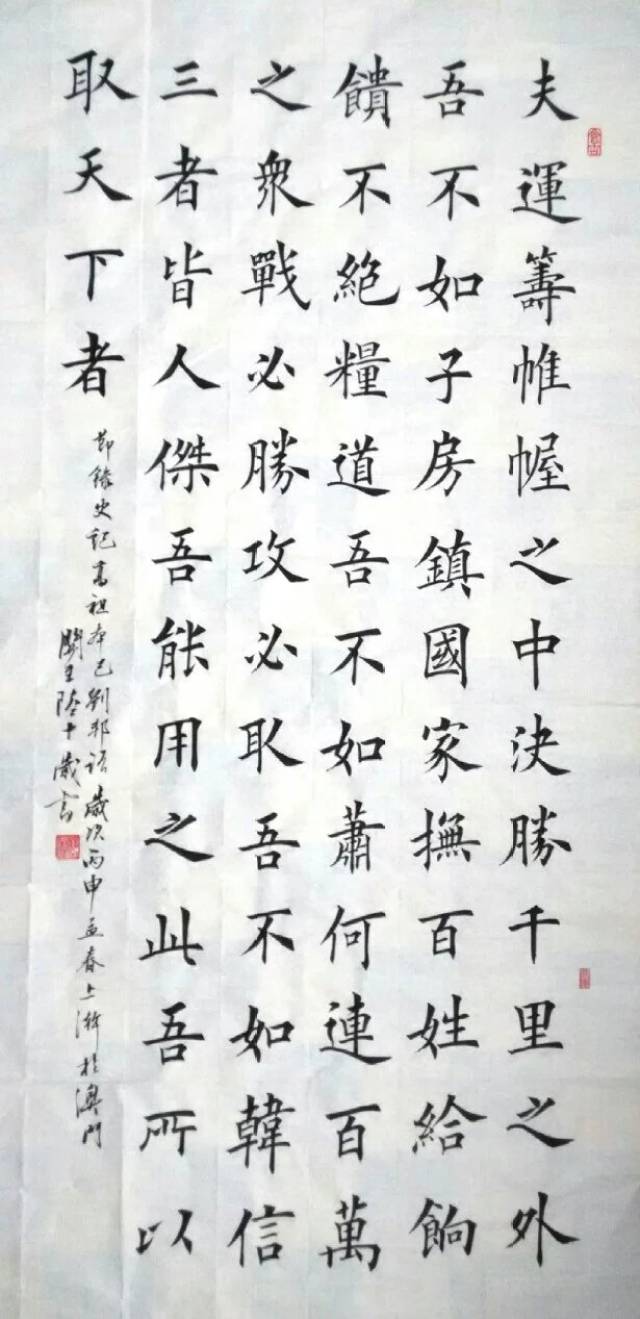 夫運籌帷幄之中決勝千里之外
吾不如子房鎮國家撫百姓給餉
饋不絕糧道吾不如蕭何連百萬
之衆戰必勝攻必取吾不如韓信
三者皆人傑吾能用之此吾所以
取天下者
節錄史記高祖本己劉邦語歲次丙申孟春上澣於澳門
關王陸十歲書